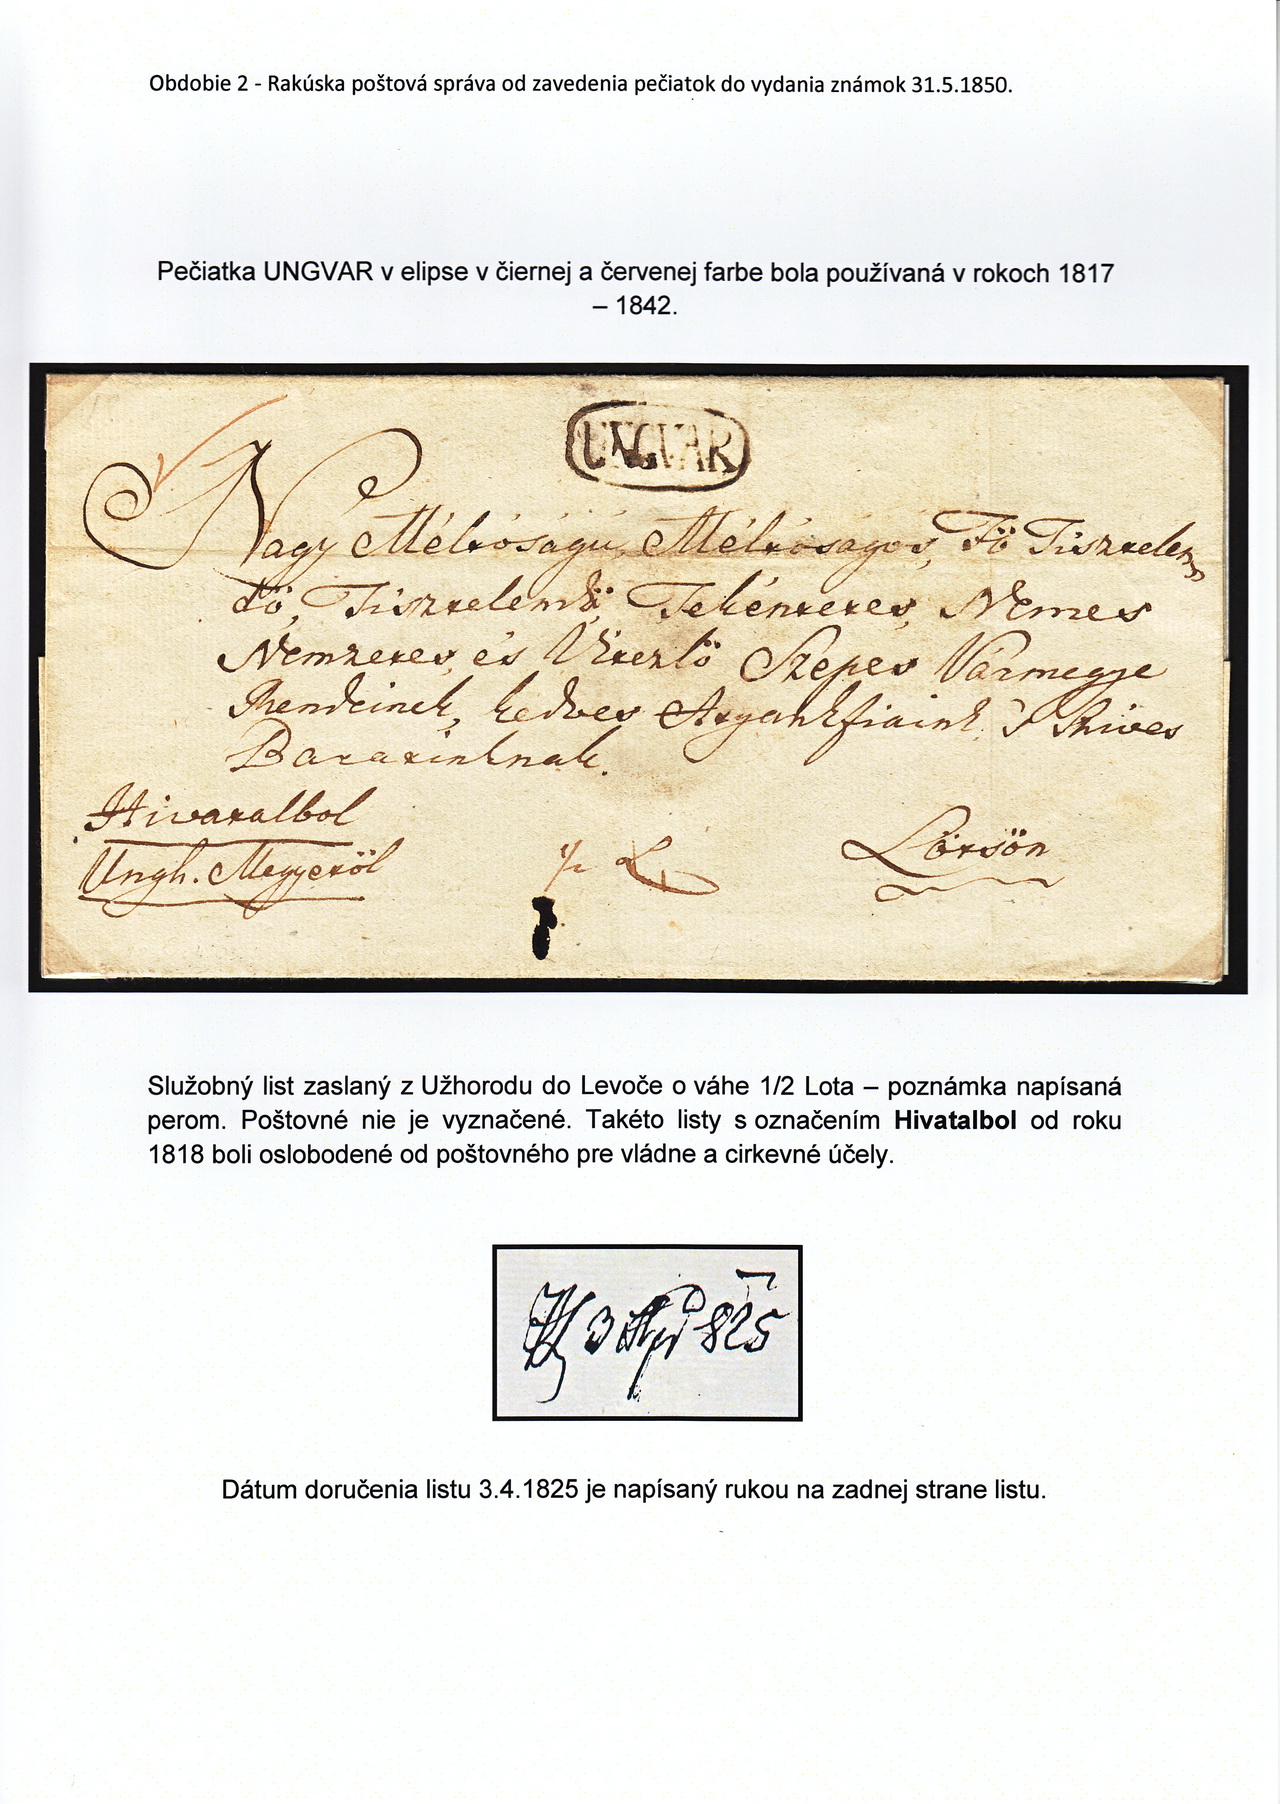 Obdobie 2 - Rakúska poštová správa od zavedenia pečiatok do vydania známok 31.5.1850.
Pečiatka UNGVAR v elipse v čiernej a červenej farbe bola používaná v rokoch 1817
– 1842.
UNGVAR
Nagy Méltóságú, Méltóságos, Fö Tisztelen
dö, Tisztelendö Tekéntetes, Nemes
Nemzetes, és Vitézlö Szepes Vármegye
Rendeinek, kedves Atyankfiaink 's Szives
Baratinknak.
Hivatalbol
Ungh. Megyeröl
1/2 L
Lötsön
Služobný list zaslaný z Užhorodu do Levoče o váhe 1/2 Lota – poznámka napísaná
perom. Poštovné nie je vyznačené. Takéto listy s označením Hivatalbol od roku
1818 boli oslobodené od poštovného pre vládne a cirkevné účely.
3 Apr 825
Dátum doručenia listu 3.4.1825 je napísaný rukou na zadnej strane listu.